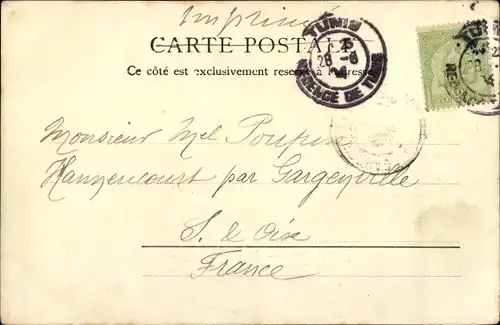 Imprimé
CARTE POSTALE
Ce côté est exclusivement réservé à l'adresse
TUNIS
28 -8
REGENCE DE TUNIS
Monsieur Mel Poupin
Hanneucourt par Gargenville
S. & Oise
France